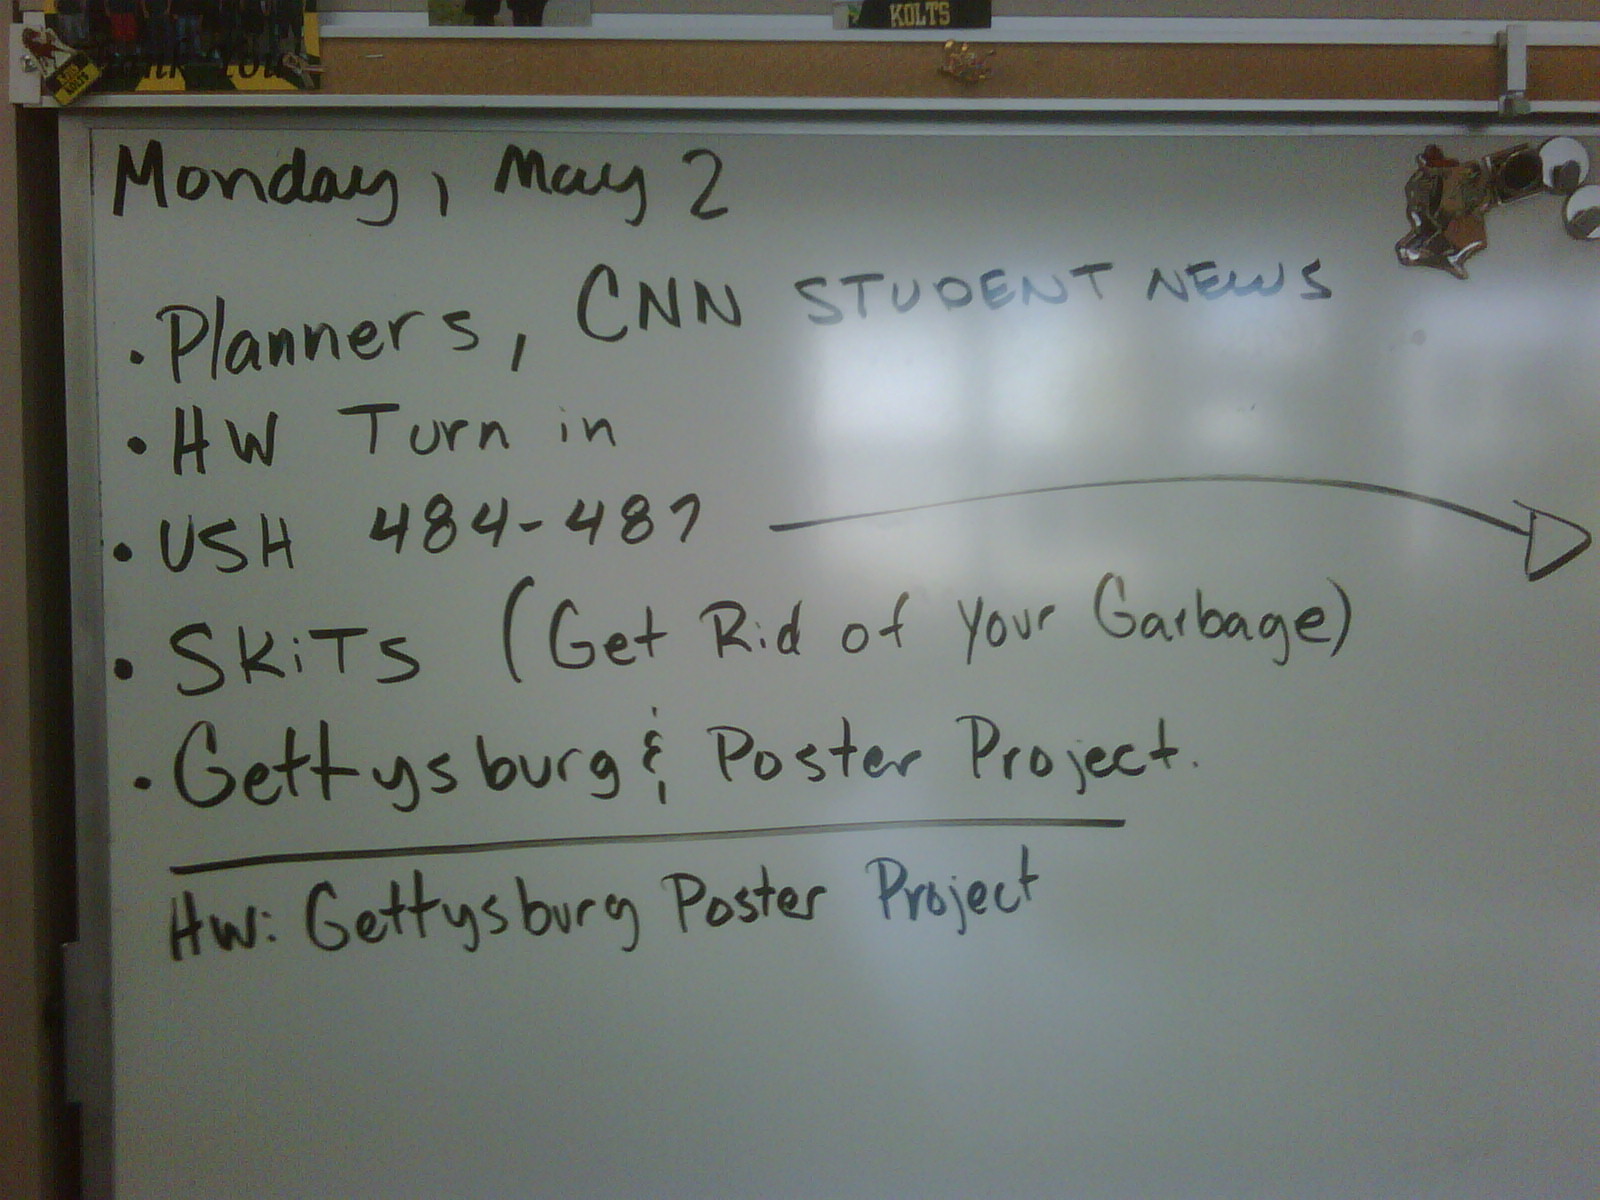 KOLTS
KOLTS
Monday, May 2
• Planners, CNN STUDENT NEWS
• HW Turn in
• USH 484-487
• SKiTS (Get Rid of Your Garbage)
• Gettysburg & Poster Project.
HW: Gettysburg Poster Project